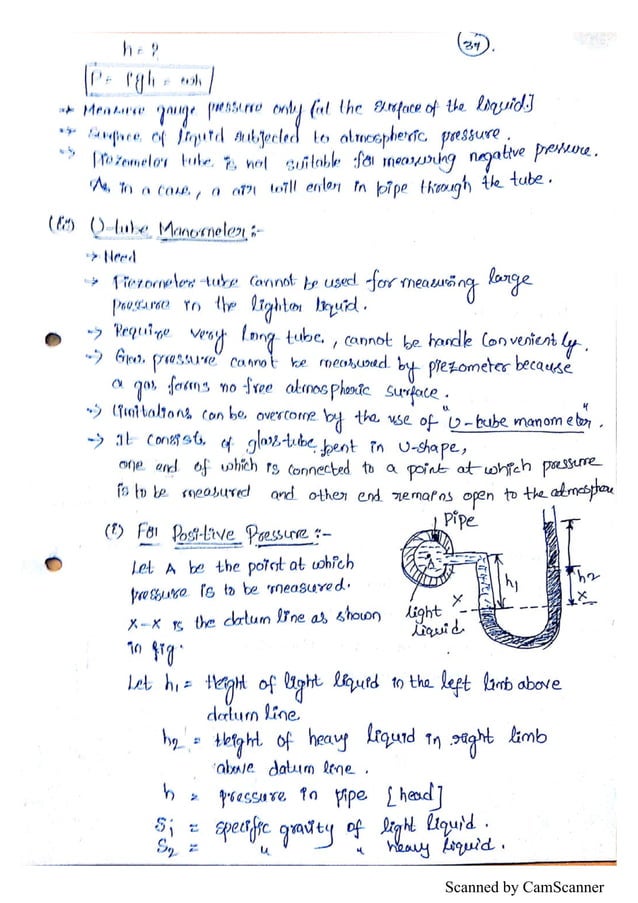 (37).
h = ?
P = ρgh = wh
→ Measure gauge pressure only [at the surface of the liquid.]
→ Surface of liquid subjected to atmospheric pressure.
→ Piezometer tube is not suitable for measuring negative pressure.
As in a case, a air will enter in pipe through the tube.
U-tube Manometer :-
→ Need
→ Piezometer tube cannot be used for measuring large
pressure in the lighter liquid.
→ Require very long tube, cannot be handle conveniently.
→ Gas pressure cannot be measured by piezometer because
a gas forms no free atmospheric surface.
→ limitations can be overcome by the use of "U-tube manometer".
→ It consists of glass-tube bent in U-shape,
one end of which is connected to a point at which pressure
is to be measured and other end remains open to the atmosphere
(i) For Positive Pressure :-
Pipe
Let A be the point at which
pressure is to be measured.
X-X is the datum line as shown
in fig.
A
h1
h2
X
X
light
liquid
Let h1 = Height of light liquid in the left limb above
datum line
h2 = Height of heavy liquid in right limb
above datum line.
h = pressure in pipe [head]
S1 = specific gravity of light liquid.
S2 = " " heavy liquid.
Scanned by CamScanner